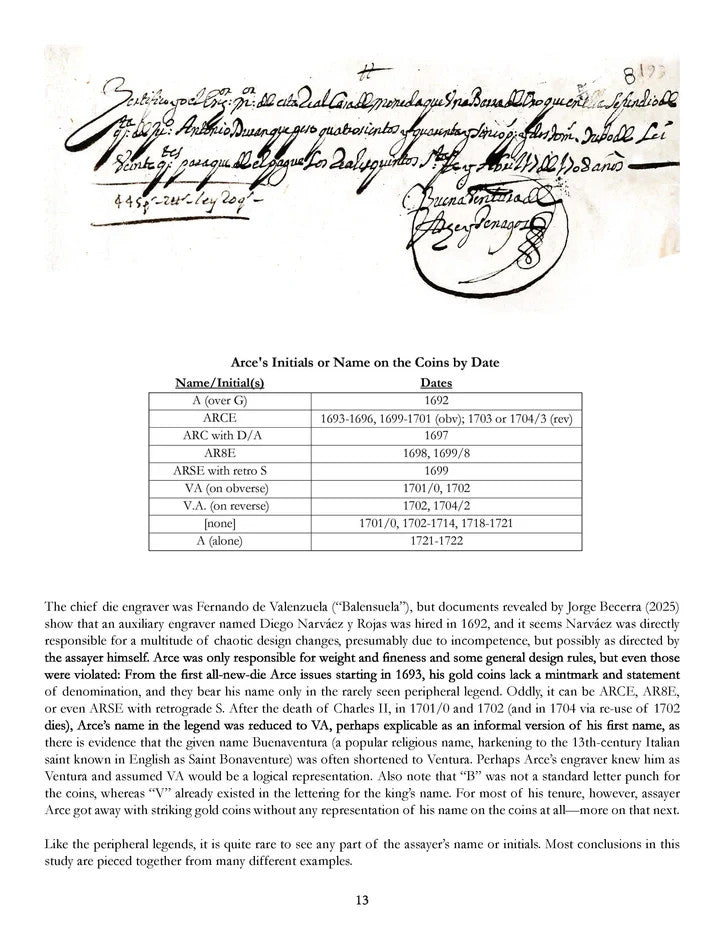 8193
Certifico yo el de esta Real Casa de moneda que Una Barra de Oro que en ella se fundio de
Antonio Duran que peso quatrosientos y quarenta y sinco
Veinte para que de el pague los Reales quintos Abril 17 de 1708 años
Buena Ventura de
Arze y Penagos
Arce's Initials or Name on the Coins by Date
Name/Initial(s) Dates
A (over G) 1692
ARCE 1693-1696, 1699-1701 (obv); 1703 or 1704/3 (rev)
ARC with D/A 1697
AR8E 1698, 1699/8
ARSE with retro S 1699
VA (on obverse) 1701/0, 1702
V.A. (on reverse) 1702, 1704/2
[none] 1701/0, 1702-1714, 1718-1721
A (alone) 1721-1722
The chief die engraver was Fernando de Valenzuela (“Balensuela”), but documents revealed by Jorge Becerra (2025)
show that an auxiliary engraver named Diego Narváez y Rojas was hired in 1692, and it seems Narváez was directly
responsible for a multitude of chaotic design changes, presumably due to incompetence, but possibly as directed by
the assayer himself. Arce was only responsible for weight and fineness and some general design rules, but even those
were violated: From the first all-new-die Arce issues starting in 1693, his gold coins lack a mintmark and statement
of denomination, and they bear his name only in the rarely seen peripheral legend. Oddly, it can be ARCE, AR8E,
or even ARSE with retrograde S. After the death of Charles II, in 1701/0 and 1702 (and in 1704 via re-use of 1702
dies), Arce’s name in the legend was reduced to VA, perhaps explicable as an informal version of his first name, as
there is evidence that the given name Buenaventura (a popular religious name, harkening to the 13th-century Italian
saint known in English as Saint Bonaventure) was often shortened to Ventura. Perhaps Arce’s engraver knew him as
Ventura and assumed VA would be a logical representation. Also note that “B” was not a standard letter punch for
the coins, whereas “V” already existed in the lettering for the king’s name. For most of his tenure, however, assayer
Arce got away with striking gold coins without any representation of his name on the coins at all—more on that next.
Like the peripheral legends, it is quite rare to see any part of the assayer’s name or initials. Most conclusions in this
study are pieced together from many different examples.
13